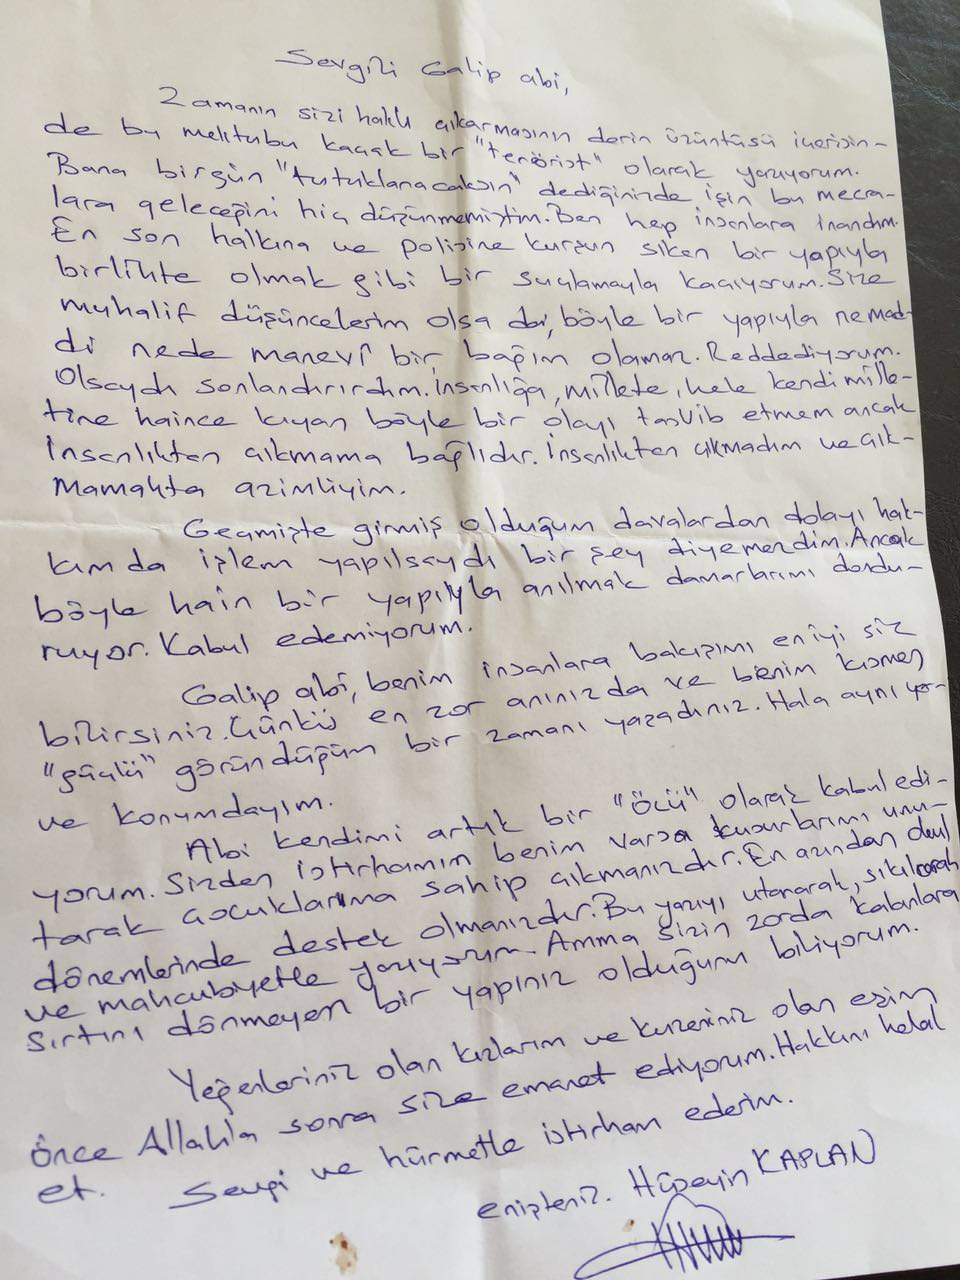 Sevgili Galip abi,
Zamanın sizi haklı çıkarmasının derin üzüntüsü içerisin-
de bu mektubu kaçak bir "terörist" olarak yazıyorum.
Bana birgün "tutuklanacaksın" dediğinizde işin bu mecra-
lara geleceğini hiç düşünmemiştim. Ben hep insanlara inandım.
En son halkına ve polisine kurşun sıken bir yapıyla
birlikte olmak gibi bir suçlamayla kaçıyorum. Size
muhalif düşüncelerim olsa da, böyle bir yapıyla ne mad-
di nede manevi bir bağım olamaz. Reddediyorum.
Olsaydı sonlandırırdım. İnsanlığa, millete, hele kendi mille-
tine haince kıyan böyle bir olayı tasvib etmem ancak
insanlıkten çıkmama bağlıdır. İnsanlıkten çıkmadım ve çık-
mamakta azimliyim.
Geçmişte girmiş olduğum davalardan dolayı hak-
kımda işlem yapılsaydı bir şey diyemezdim. Ancak
böyle hain bir yapıyla anılmak damarlarımı dondu-
ruyor. Kabul edemiyorum.
Galip abi, benim insanlara bakışımı en iyi siz
bilirsiniz. Çünkü en zor anınızda ve benim kısmen
"güçlü" göründüğüm bir zamanı yaşadınız. Hala aynı yer
ve konumdayım.
Abi kendimi artık bir "öcü" olarak kabul edi-
yorum. Sizden istirhamım benim varsa kusurlarımı unu-
tarak çocuklarıma sahip çıkmanızdır. En azından okul
dönemlerinde destek olmanızdır. Bu yazıyı utanarak, sıkılarak
ve mahcubiyetle yazıyorum. Amma sizin zorda kalanlara
sırtını dönmeyen bir yapınız olduğunu biliyorum.
Yeğenleriniz olan kızlarım ve kuzeniniz olan eşim
önce Allah'a sonra size emanet ediyorum. Hakkını helal
et. Sevgi ve hürmetle istirham ederim.
enişteniz. Hüseyin KAPLAN